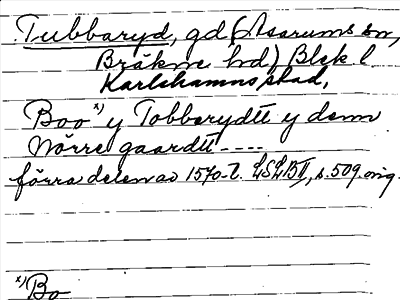 Tubbaryd, gd (Asarums sn,
Bräkne hd) Blek l
Karlshamns stad,
Boo x) y Tobberydtt y denn
Nörre gaardtt ----
förra delen av 1570-t. LSLBII, s. 509. orig.
x) Bo